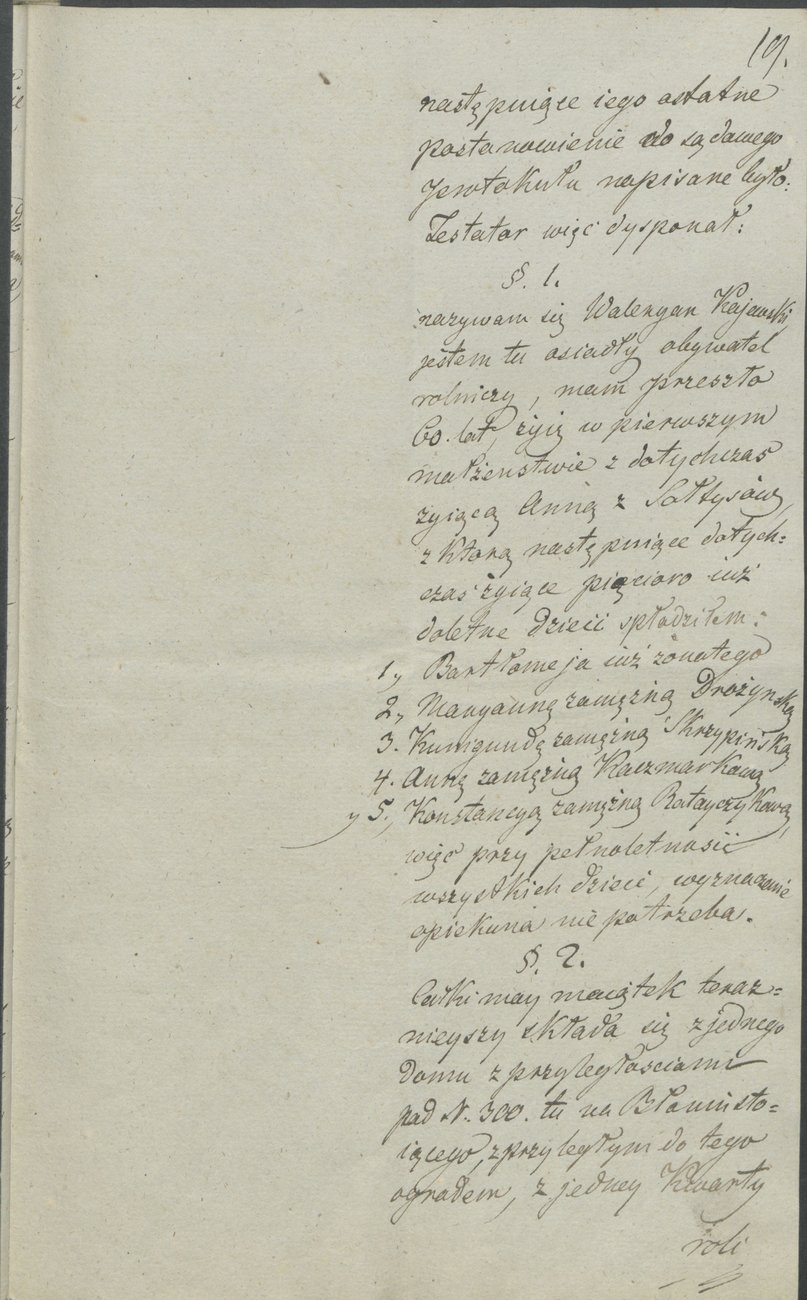 19.
następuiące iego ostatne
postanowienie do sądowego
protokułu napisane było:
Testator więc dysponał:
§. 1.
nazywam się Waleryan Kajewski,
jestem tu osiadły obywatel
rolniczy, mam przeszło
60. lat, żyię w pierwszym
małżenstwie z dotychczas
zyiącą Anną z Sołtysów,
z ktorą następuiące dotych=
czas żyiące pięcioro iuż
doletne dzieci spłodziłem:
1, Bartłomeja iuż żonatego
2, Maryannę zamężną Drożynską
3. Kunigundę zamężną Skrzypińską
4. Annę zamężną Kaczmarkową
y 5, Konstancyą zamężną Ratayczykową,
więc przy pełnoletnosci
wszystkich dzieci, wyznaczenie
opiekuna nie potrzeba.
§. 2.
Całki moy maiątek teraz=
nieyszy składa się z jednego
domu z przyległosciami
pod N. 300. tu na Błoniu sto=
iącego, z przyległym do tego
ogrodem, z jedney Kwarty
roli